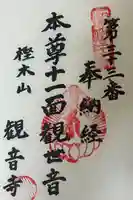 第二十三番
奉納経
本尊十一面観世音
樫木山
観音寺